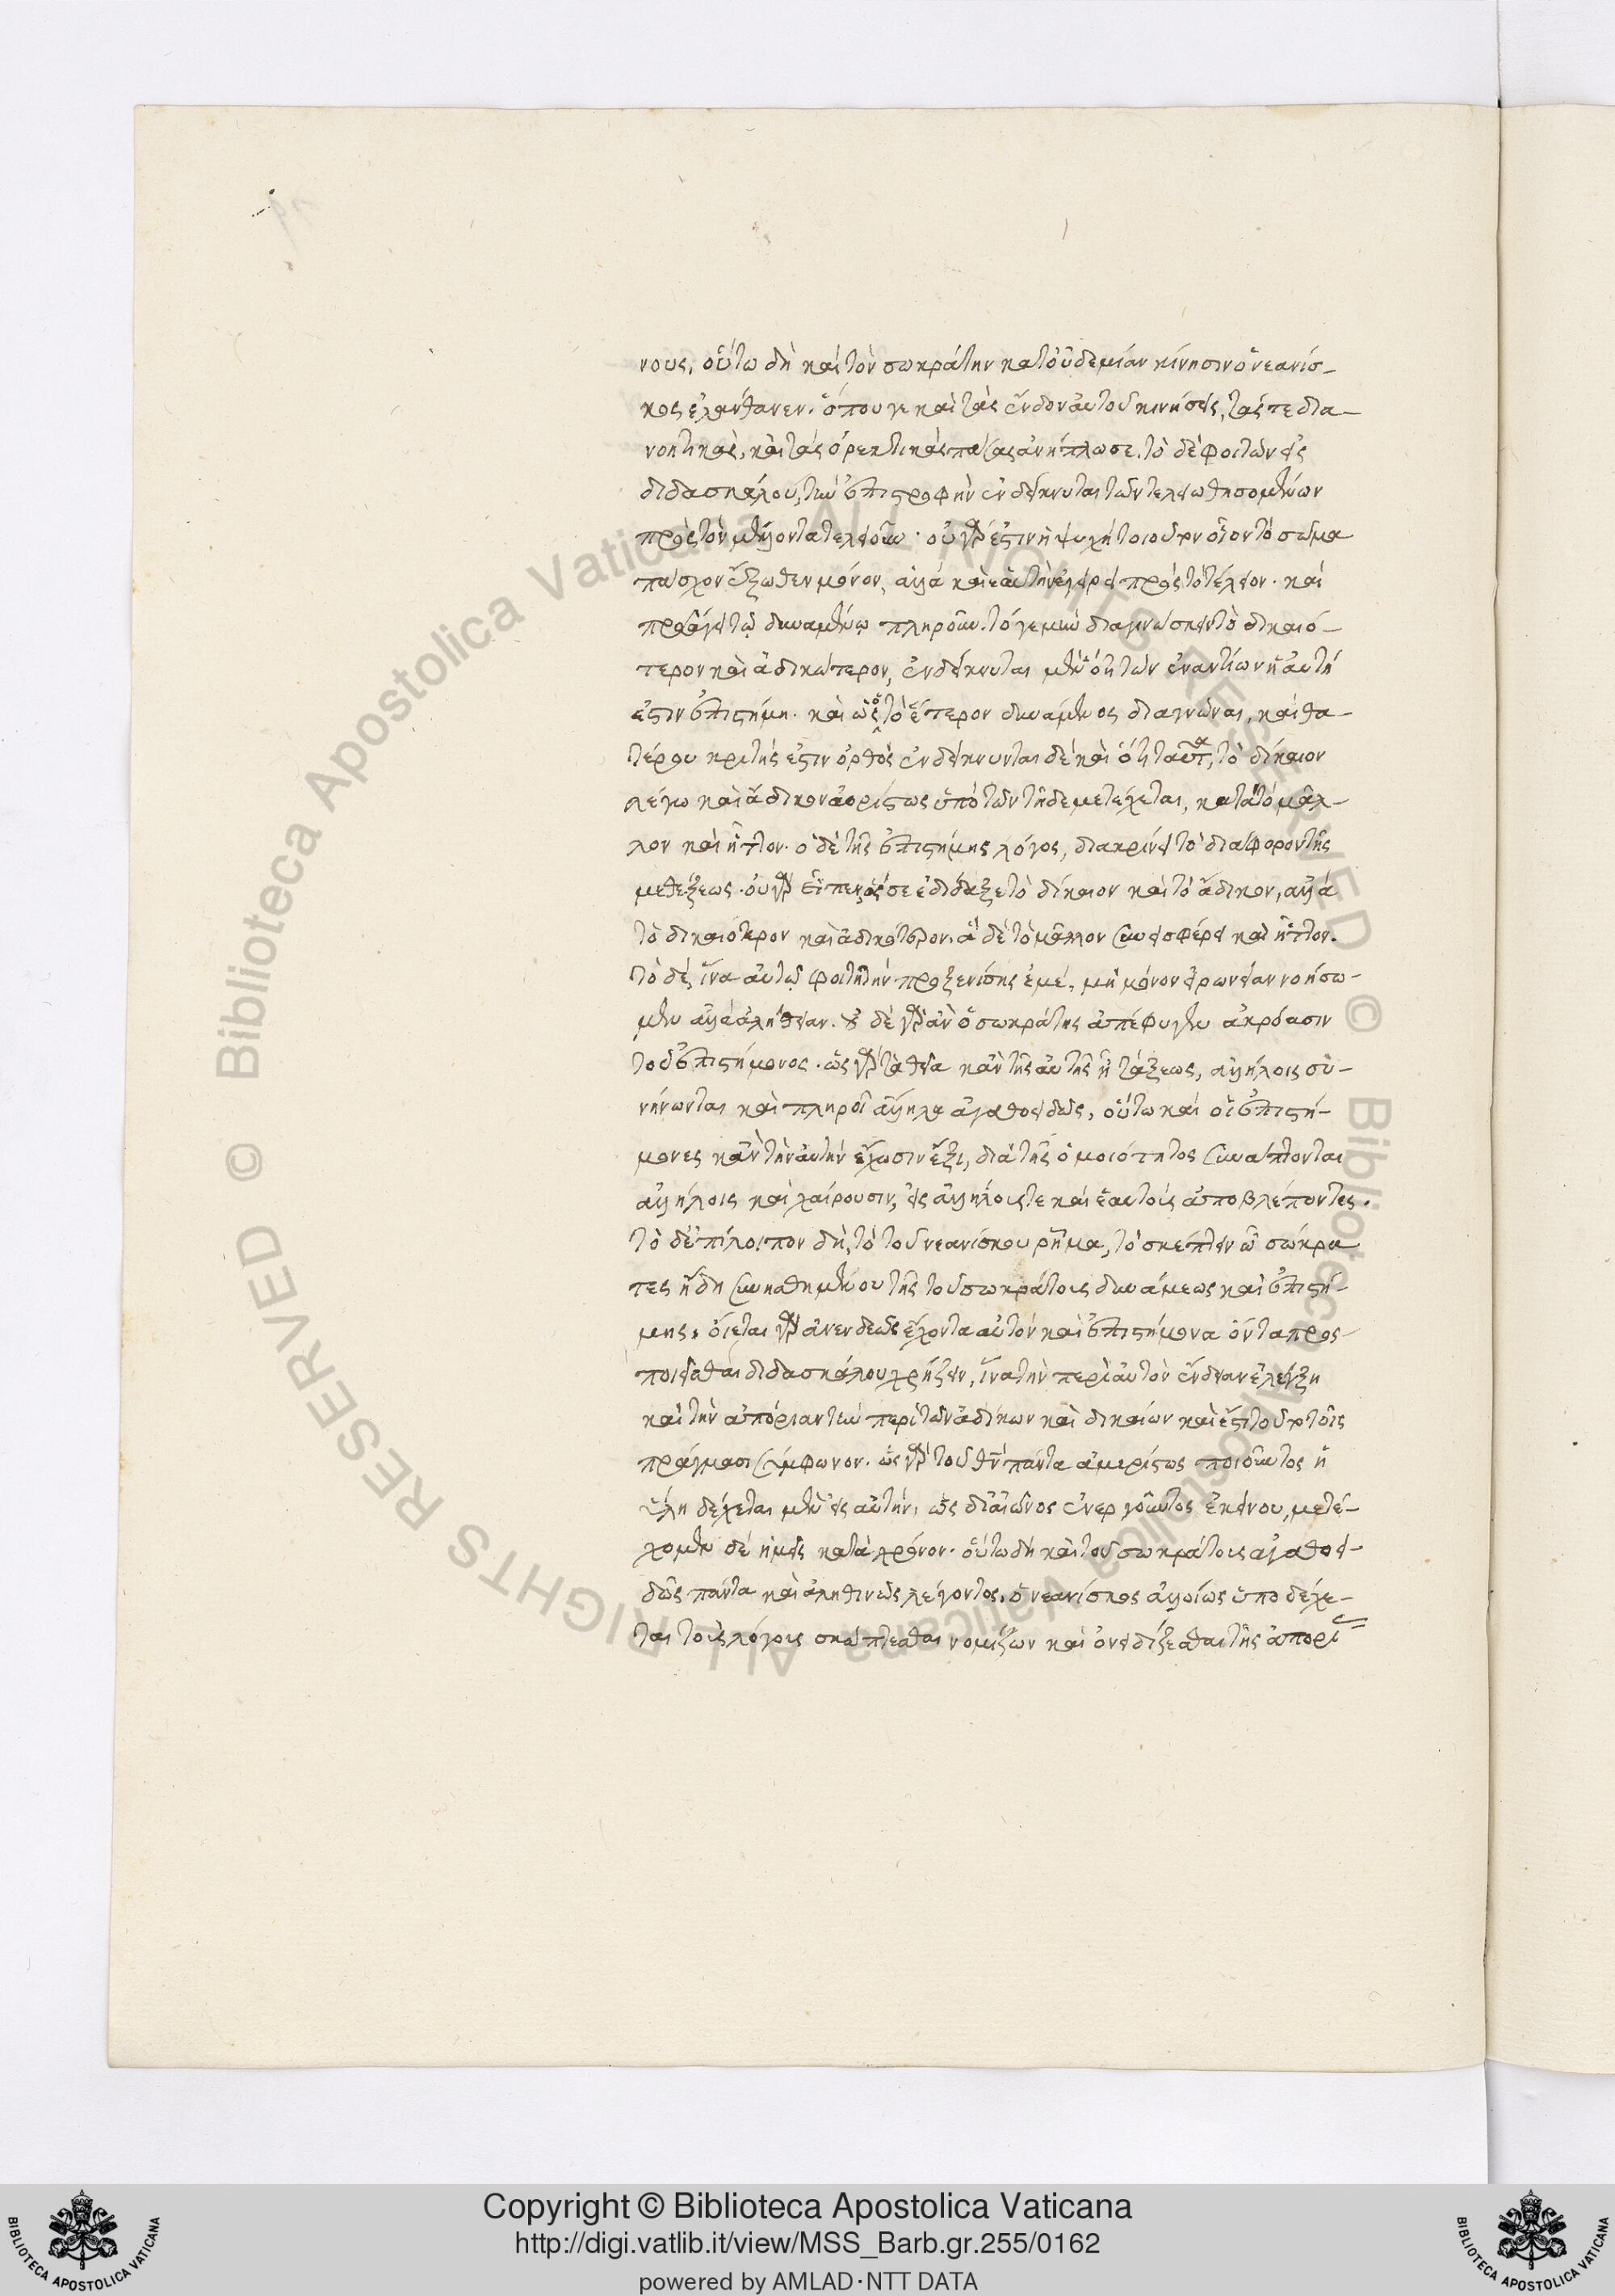 νους, οὕτω δὴ καὶ τὸν σωκράτην κατ' οὐδεμίαν κίνησιν ὁ νεανίσ-
κος ἐλάνθανεν. ὅπου γε καὶ τὰς ἔνδον αὐτοῦ κινήσεις, τάς τε δια-
νοητικὰς, καὶ τὰς ὀρεκτικὰς πάσας ἀνήπλωσε. τὸ δὲ φοιτῶν εἰς
διδασκάλου, τὴν ἐπιστροφὴν ἐνδείκνυται τῶν τελειωθησομένων
πρὸς τὸν μέλλοντα τελειοῦν. οὐ γάρ ἐστιν ἡ ψυχὴ τοιοῦτον οἷον τὸ σῶμα
πάσχον ἔξωθεν μόνον, ἀλλὰ καὶ ἑαυτὴν ἐγείρει πρὸς τὸ τέλειον. καὶ
προσάγει τῷ δυναμένῳ πληροῦν. τό γε μὴν διαγινώσκειν τὸ δικαιό-
τερον καὶ ἀδικώτερον, ἐνδείκνυται μὲν ὅτι τῶν ἐναντίων ἡ αὐτή
ἐστιν ἐπιστήμη. καὶ ὡς ὁ τὸ ἕτερον δυνάμενος διαγνῶναι, καὶ θα-
τέρου κριτής ἐστιν ὀρθὸς ἐνδείκνυται δὲ καὶ ὅτι ταῦτα, τὸ δίκαιον
λέγω καὶ ἄδικον ἀορίστως ὑπὸ τῶν τῇδε μετέχεται, κατὰ τὸ μᾶλ-
λον καὶ ἧττον. ὁ δὲ τῆς ἐπιστήμης λόγος, διακρίνει τὸ διάφορον τῆς
μεθέξεως. οὐ γὰρ εἶπεν, ὅς σε ἐδίδαξε τὸ δίκαιον καὶ τὸ ἄδικον, ἀλλὰ
τὸ δικαιότερον καὶ ἀδικώτερον. ἃ δὲ τὸ μᾶλλον συνεισφέρει καὶ ἧττον.
τὸ δὲ, ἵνα αὐτῷ φοιτητὴν προξενίσῃς ἐμέ, μὴ μόνον εἰρωνείαν νοήσω-
μεν ἀλλὰ ἀλήθειαν. οὐδὲ γὰρ ἂν ὁ σωκράτης ἀπέφυγεν ἀκρόασιν
τοῦ ἐπιστήμονος. ὡς γὰρ τὰ θεῖα κἂν τῆς αὐτῆς ᾖ τάξεως, ἀλλήλοις συ-
νήνωνται καὶ πληροῖ ἄλληλα ἀγαθοειδῶς, οὕτω καὶ οἱ ἐπιστή-
μονες κἂν τὴν αὐτὴν ἔχωσιν ἕξιν, διὰ τῆς ὁμοιότητος συνάπτονται
ἀλλήλοις καὶ χαίρουσιν, εἰς ἀλλήλοις τε καὶ ἑαυτοῖς ἀποβλέποντες.
τὸ δ' ἐπίλοιπον δὴ, τὸ τοῦ νεανίσκου ῥῆμα, τὸ σκώπτειν ὦ σώκρα
τες ἤδη συνῃσθημένου τῆς τοῦ σωκράτους δυνάμεως καὶ ἐπιστή-
μης. οἴεται γὰρ ἀνενδεῶς ἔχοντα αὐτὸν καὶ ἐπιστήμονα ὄντα προσ-
ποιεῖσθαι διδασκάλου χρῄζειν, ἵνα τὴν περὶ αὐτὸν ἔνδειαν ἐλέγξῃ
καὶ τὴν ἀπόριαν τὴν περὶ τῶν ἀδίκων καὶ δικαίων καὶ ἔστι τοῦτο τοῖς
πράγμασι σύμφωνον. ὡς γὰρ τοῦ θεοῦ πάντα ἀμερίστως ποιοῦντος ἡ
ὕλη δέχεται μὲν εἰς αὐτήν, ὡς δι' αἰῶνος ἐνεργοῦντος ἐκείνου, μετέ-
χομεν δὲ ἡμεῖς κατὰ χρόνον. οὕτω δὴ καὶ τοῦ σωκράτους ἀγαθοει-
δῶς πάντα καὶ ἀληθινῶς λέγοντος, ὁ νεανίσκος ἀλλοίως ὑποδέχε-
ται τοὺς λόγους σκώπτεσθαι νομίζων καὶ ὀνειδίζεσθαι τῆς ἀπορί
Copyright © Biblioteca Apostolica Vaticana
http://digi.vatlib.it/view/MSS_Barb.gr.255/0162
powered by AMLAD·NTT DATA